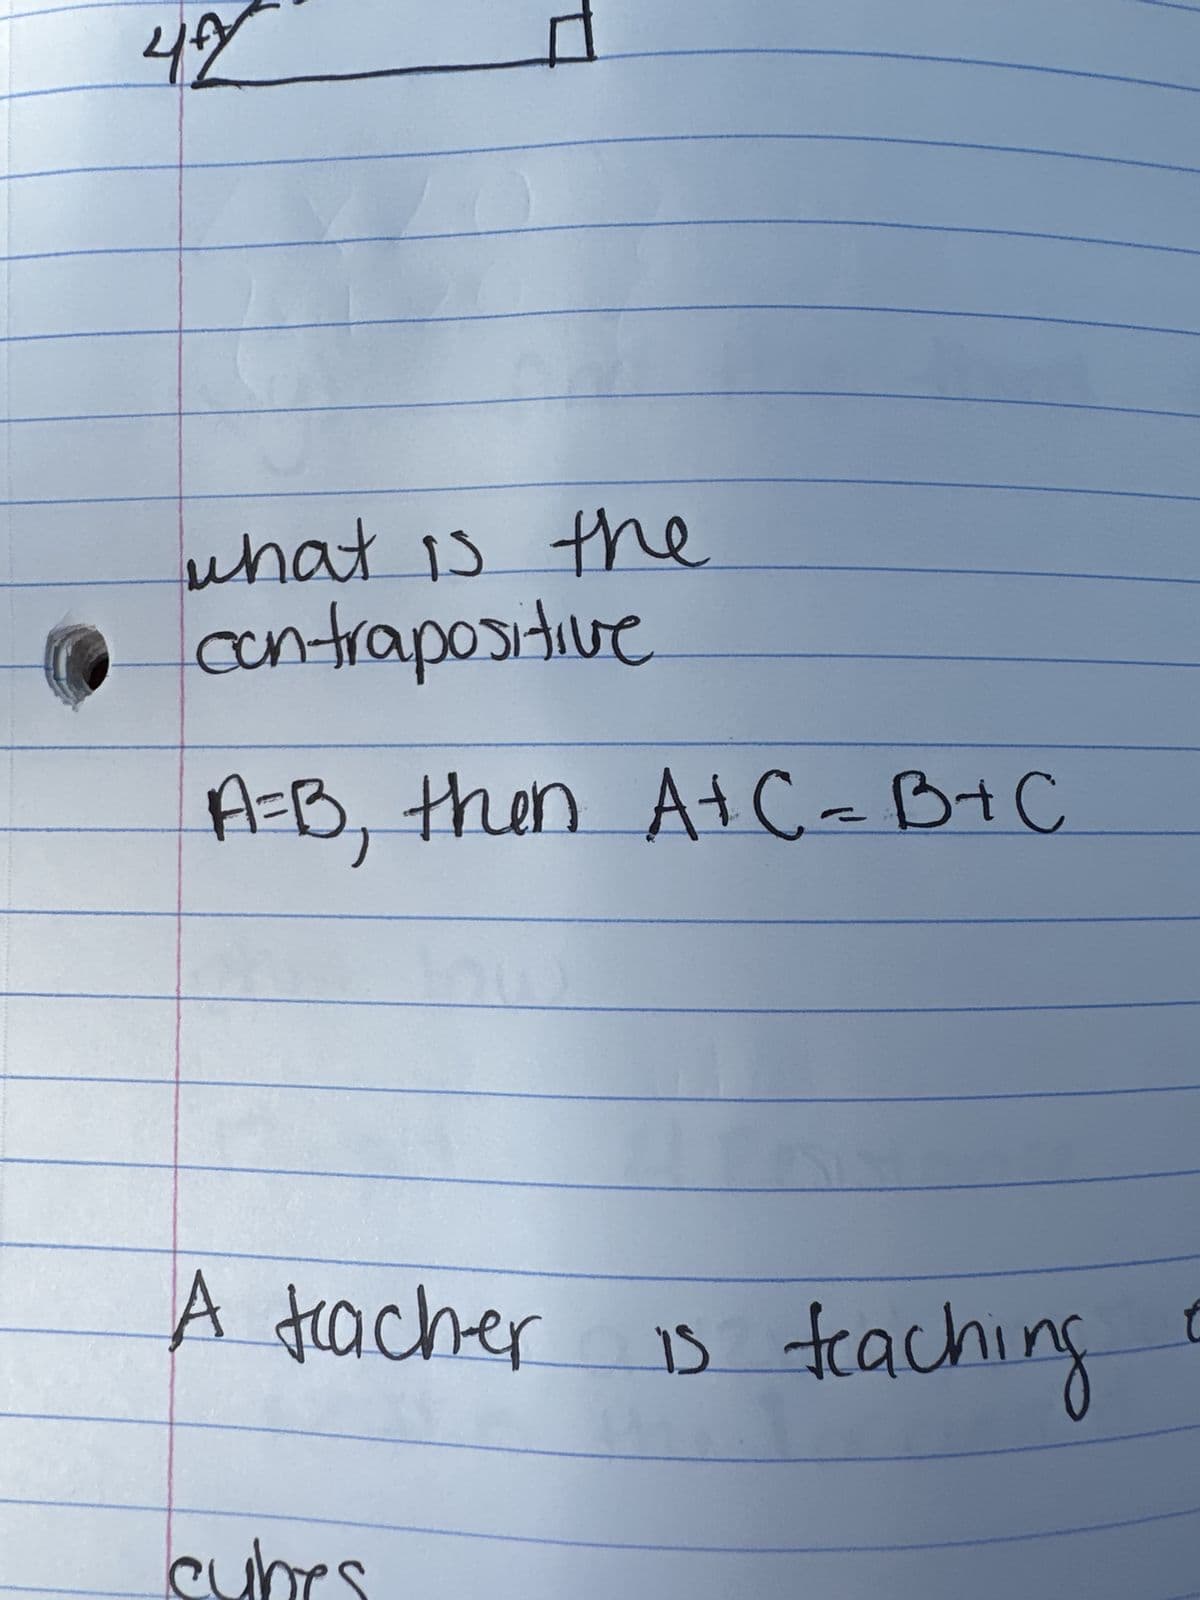 what is the
contrapositive
A=B, then A+C = B+C
A teacher is teaching
cubes